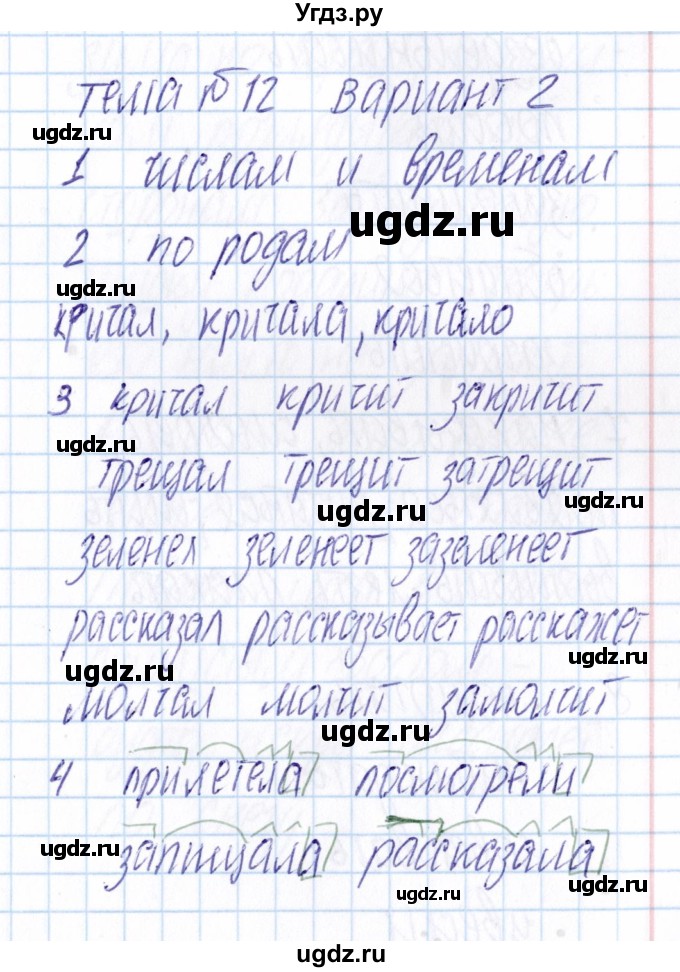 Угдз.ру
тема №12 вариант 2
ugdz.ru
1 числам и временам
ugdz.ru
2 по родам
ugdz.ru
кричал, кричала, кричало
3 кричал кричит закричит
ugdz.ru
трещал трещит затрещит
ugdz.ru
ugdz.ru
зеленел зеленеет зазеленеет
рассказал рассказывает расскажет
ugdz.ru
ugdz.ru
молчал молчит замолчит
ugdz.ru
4 прилетела посмотрели
ugdz.ru
ugdz.ru
запищала рассказала
ugdz.ru
ugdz.ru
ugdz.ru